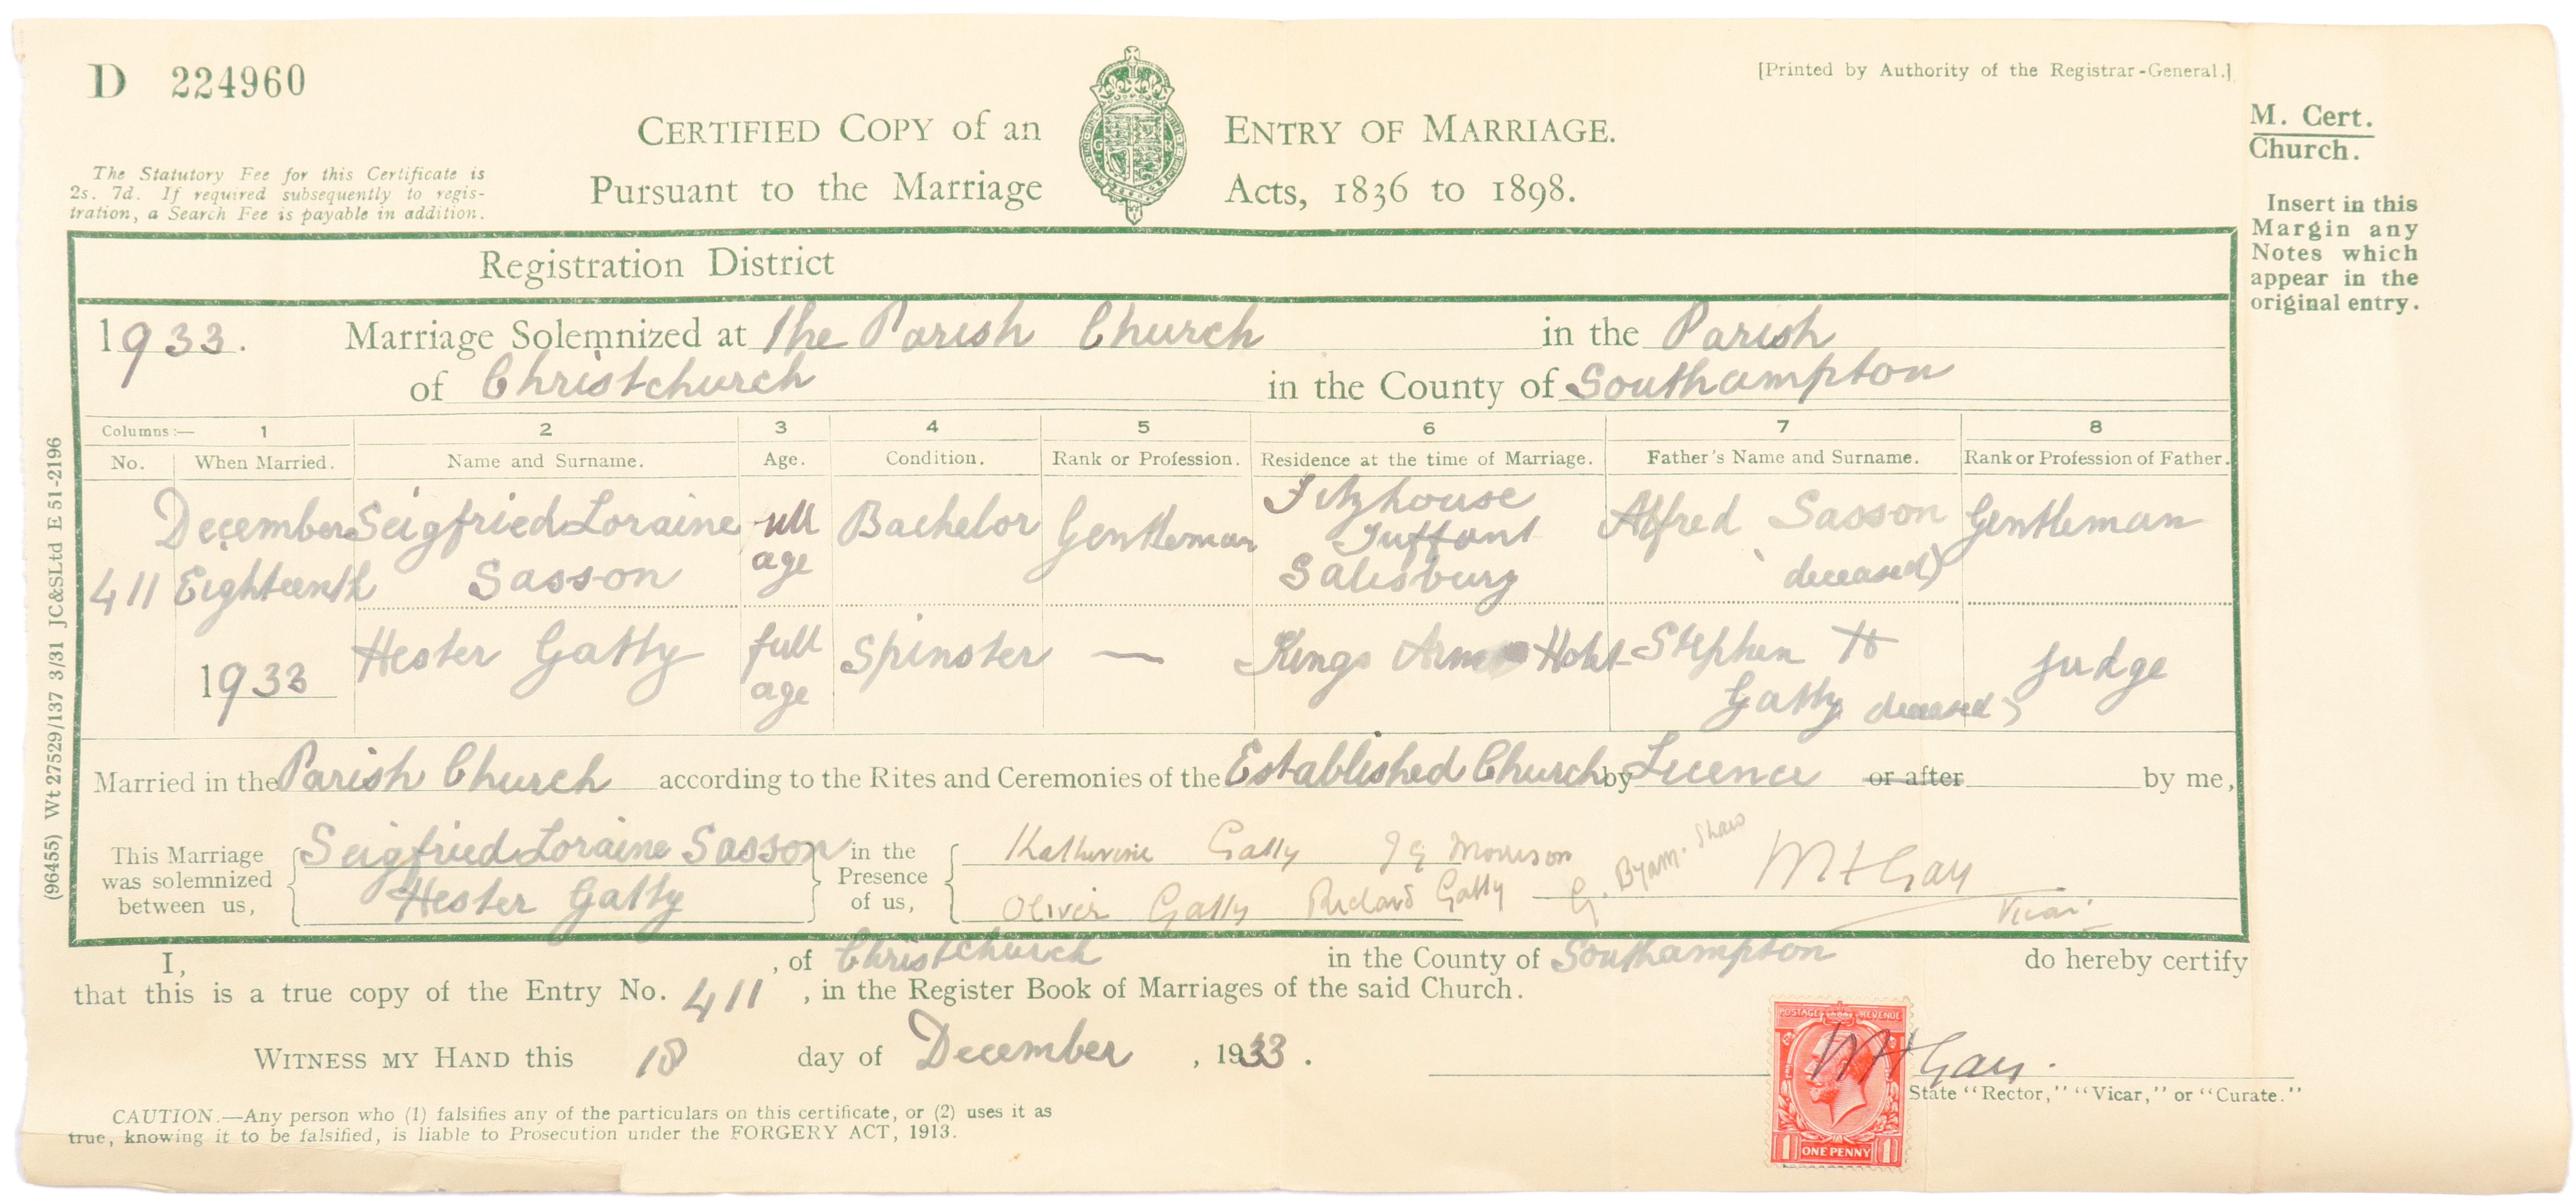 D 224960
[Printed by Authority of the Registrar-General.]
CERTIFIED COPY of an ENTRY OF MARRIAGE.
Pursuant to the Marriage Acts, 1836 to 1898.
G R
The Statutory Fee for this Certificate is
2s. 7d. If required subsequently to regis-
tration, a Search Fee is payable in addition.
M. Cert.
Church.
Insert in this
Margin any
Notes which
appear in the
original entry.
Registration District
1933. Marriage Solemnized at The Parish Church in the Parish
of Christchurch in the County of Southampton
Columns:— 1 2 3 4 5 6 7 8
No. When Married. Name and Surname. Age. Condition. Rank or Profession. Residence at the time of Marriage. Father's Name and Surname. Rank or Profession of Father.
411 December Eighteenth 1933
Seigfried Loraine Sasson
full age
Bachelor
Gentleman
Fitzhouse
Tuffont
Salisbury
Alfred Sasson
deceased)
Gentleman
Hester Gatty
full age
Spinster
—
Kings Arms Hotel
Stephen H
Gatty deceased)
Judge
Married in the Parish Church according to the Rites and Ceremonies of the Established Church by Licence or after by me,
This Marriage
was solemnized
between us,
Seigfried Loraine Sasson
Hester Gatty
in the
Presence
of us,
Katherine Gatty J G Morrison
Oliver Gatty Richard Gatty G. Byam-Shaw
W H Gay
Vicar
I, , of Christchurch in the County of Southampton do hereby certify
that this is a true copy of the Entry No. 411 , in the Register Book of Marriages of the said Church.
WITNESS MY HAND this 18 day of December , 1933.
W H Gay.
State "Rector," "Vicar," or "Curate."
POSTAGE REVENUE
1 ONE PENNY 1
CAUTION.—Any person who (1) falsifies any of the particulars on this certificate, or (2) uses it as
true, knowing it to be falsified, is liable to Prosecution under the FORGERY ACT, 1913.
(96455) Wt 27529/137 3/31 JC&SLtd E 51-2196